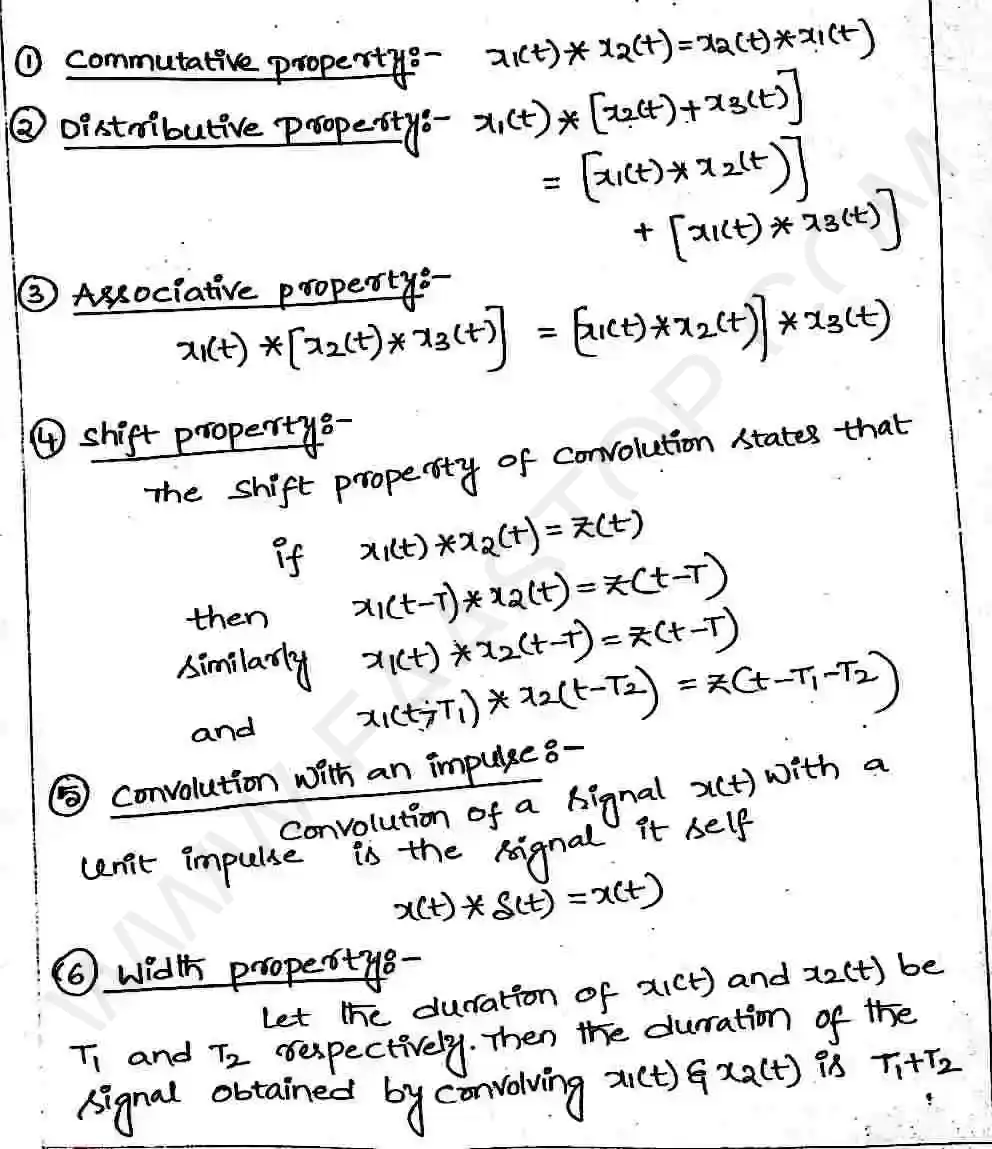 ① Commutative property:- x1(t) * x2(t) = x2(t) * x1(t)
② Distributive property:- x1(t) * [x2(t) + x3(t)]
= [x1(t) * x2(t)]
+ [x1(t) * x3(t)]
③ Associative property:-
x1(t) * [x2(t) * x3(t)] = [x1(t) * x2(t)] * x3(t)
④ Shift property:-
The shift property of convolution states that
if x1(t) * x2(t) = z(t)
then x1(t-T) * x2(t) = z(t-T)
similarly x1(t) * x2(t-T) = z(t-T)
and x1(t-T1) * x2(t-T2) = z(t-T1-T2)
⑤ Convolution with an impulse:-
Convolution of a signal x(t) with a
unit impulse is the signal it self
x(t) * δ(t) = x(t)
⑥ Width property:-
Let the duration of x1(t) and x2(t) be
T1 and T2 respectively. Then the duration of the
signal obtained by convolving x1(t) & x2(t) is T1+T2
WWW.FAASTOP.COM